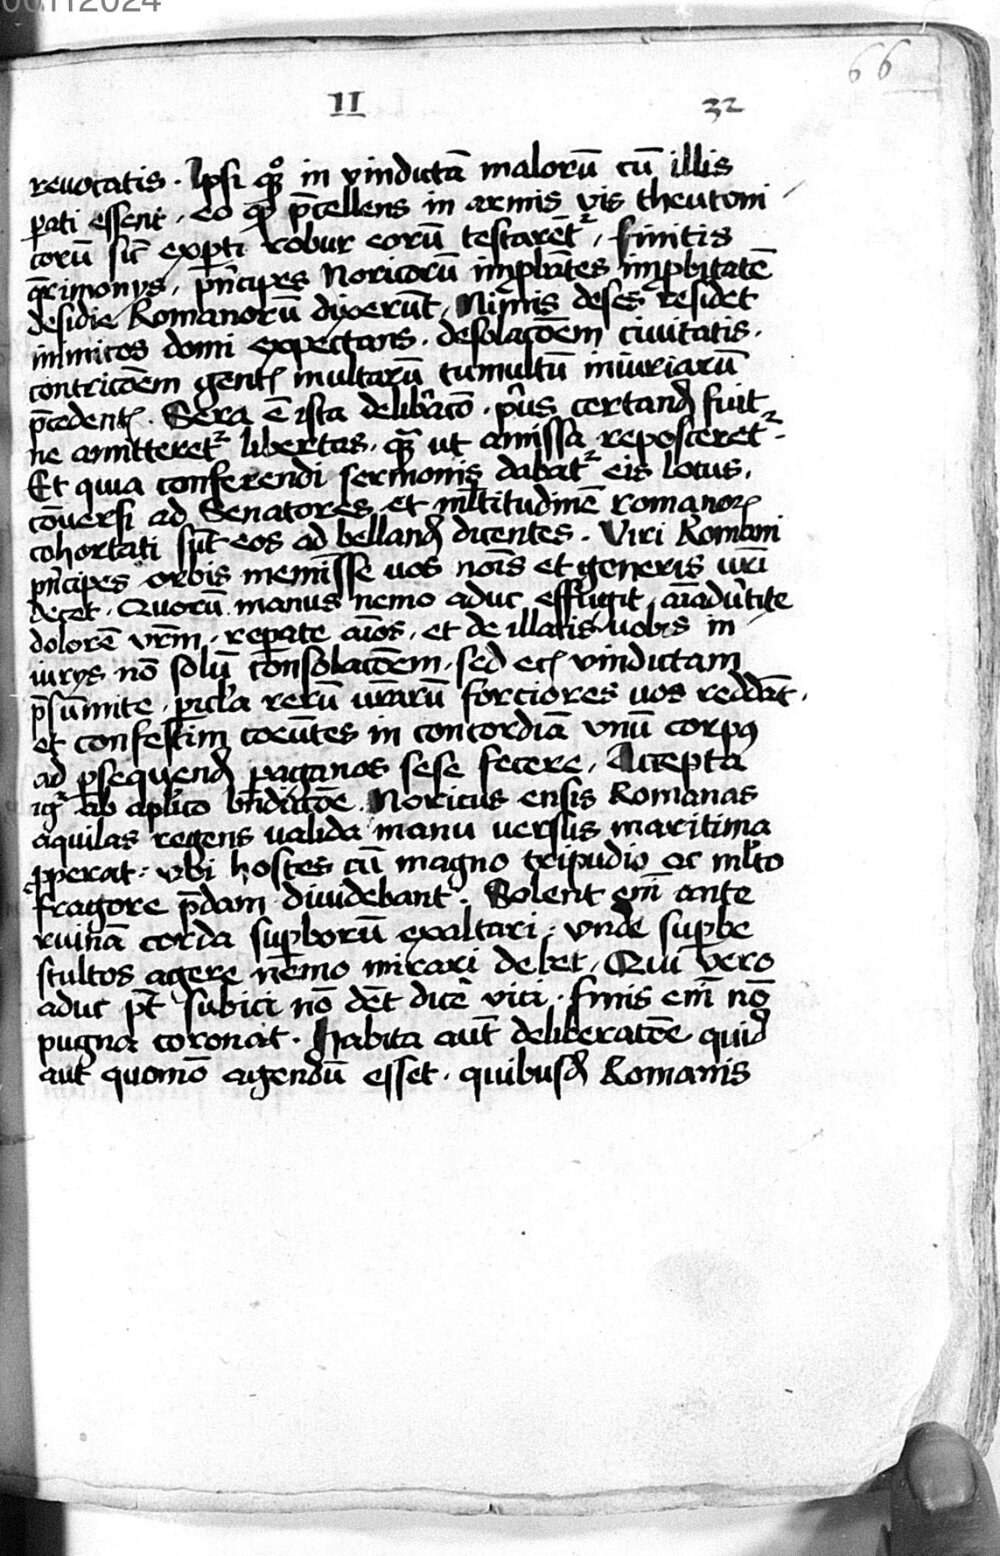 00112024
66
II 32
reuocatis . Ipsi qq̊ in vindictā malorū cū illis
ꝑati essent , eo ꝙ p̄cellens in armis vis theutoni
corū sic̄ exꝑti robur eorū testarēt᷑ , finitis
q̄rimonijs , pn̄cipes Noricorū improbātes improbitatē
desidie Romanorū dixerūt , Nimis deses residet
inimicos domi expectans . desolacōem ciuitatis .
contricōem gentꝭ multarū tumultū iniuriarū
p̄cedentꝭ . Sera ē ista delibᷓaco . pͥus certandū fuit
ne amitteret᷑ libertas . qᷓ ut amissa reposceret᷑ .
Et quia conferendi sermonis dabat᷑ eis locus ,
cōuersi ad Senatores et ml̄titudinē romanorꝝ
cohortati sūt eos ad bellandū dicentes . Viri Romani
pn̄cipes orbis meminisse uos nōis et generis ur̄i
decet . Quorū manus nemo aduc effugit , aīaduertite
dolorē vr̄m , reꝑate aīos , et de illatis uobis in
iurijs nō solū consolacōem , sed ecꝭ vindictam
p̄sumite , ꝑicl̄a rerū ur̄arū forciores uos reddāt .
et confestim coeūtes in concordiā vnū corpꝰ
ad ꝑsequendū paganos sese fecere , Accepta
ig᷑ ab apl̄ico bn̄dictōe . Noricus ensis Romanas
aquilas regens valida manu versus maritima
ꝓperat : vbi hostes cū magno tripudio ac ml̄to
fragore p̄dam diuidebant . Solent em̄ ante
ruinā corda suꝑborū exaltari : vnde suꝑbe
stultos agere nemo mirari debet , Qui vero
aduc pt̄ subici nō dēt dicē vici . finis em̄ nō
pugna coronat . Habita aut̄ deliberatōe quid
aut quomō agendū esset . quibusdā Romanis